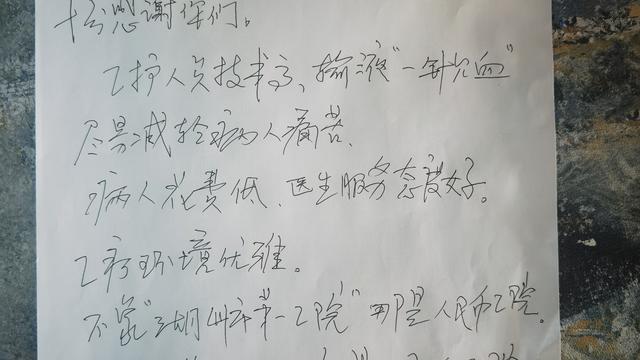 十分感谢你们。
医护人员技术高、输液“一针见血”
尽量减轻病人痛苦、
病人花费低、医生服务态度好。
医疗环境优雅。
不愧“湖州市第一医院”用是人民医院。